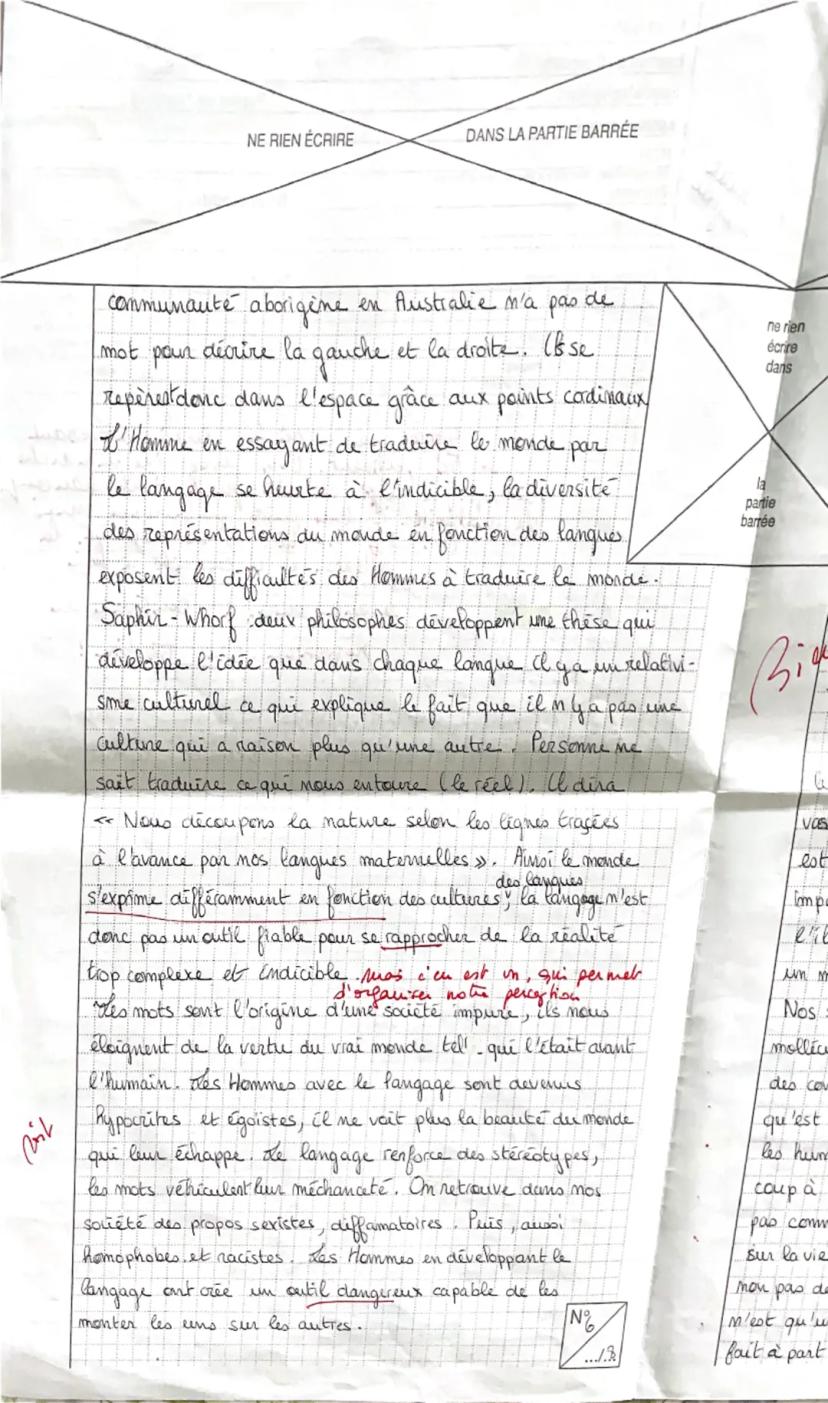 NE RIEN ÉCRIRE DANS LA PARTIE BARRÉE
communauté aborigène en Australie n'a pas de
mot pour décrire la gauche et la droite. Ils se
repèrent donc dans l'espace grâce aux points cardinaux
L'Homme en essayant de traduire le monde par
le langage se heurte à l'indicible, la diversité
des représentations du monde en fonction des langues
exposent les difficultés des Hommes à traduire le monde.
Saphir-Whorf deux philosophes développent une thèse qui
développe l'idée que dans chaque langue il y a un relativi-
sme culturel ce qui explique le fait que il n'y a pas une
culture qui a raison plus qu'une autre. Personne ne
sait traduire ce qui nous entoure (le réel). Il dira
« Nous découpons la nature selon les lignes tracées
à l'avance par nos langues maternelles ». Ainsi le monde
des langues
s'exprime différamment en fonction des cultures, la langage n'est
donc pas un outil fiable pour se rapprocher de la réalité
trop complexe et indicible. mais c'en est un, qui permet
d'organiser notre perception
Les mots sont l'origine d'une société impure, ils nous
éloignent de la vertu du vrai monde tel qui l'était avant
l'humain. Les Hommes avec le langage sont devenus
hypocrites et égoïstes, il ne voit plus la beauté du monde
qui leur échappe. Le langage renforce des stéréotypes,
les mots véhiculent leur méchanceté. On retrouve dans nos
société des propos sexistes, diffamatoires. Puis, aussi
homophobes et racistes. Les Hommes en développant le
langage ont crée un outil dangereux capable de les
monter les uns sur les autres.
N°
6
.../8
ne rien
écrire
dans
la
partie
barrée
vas
est
un m
Nos
mollécu
des co
qu'est
les hum
coup à
pas comm
sur la vie
mon pas de
n'est qu'u
fait à part